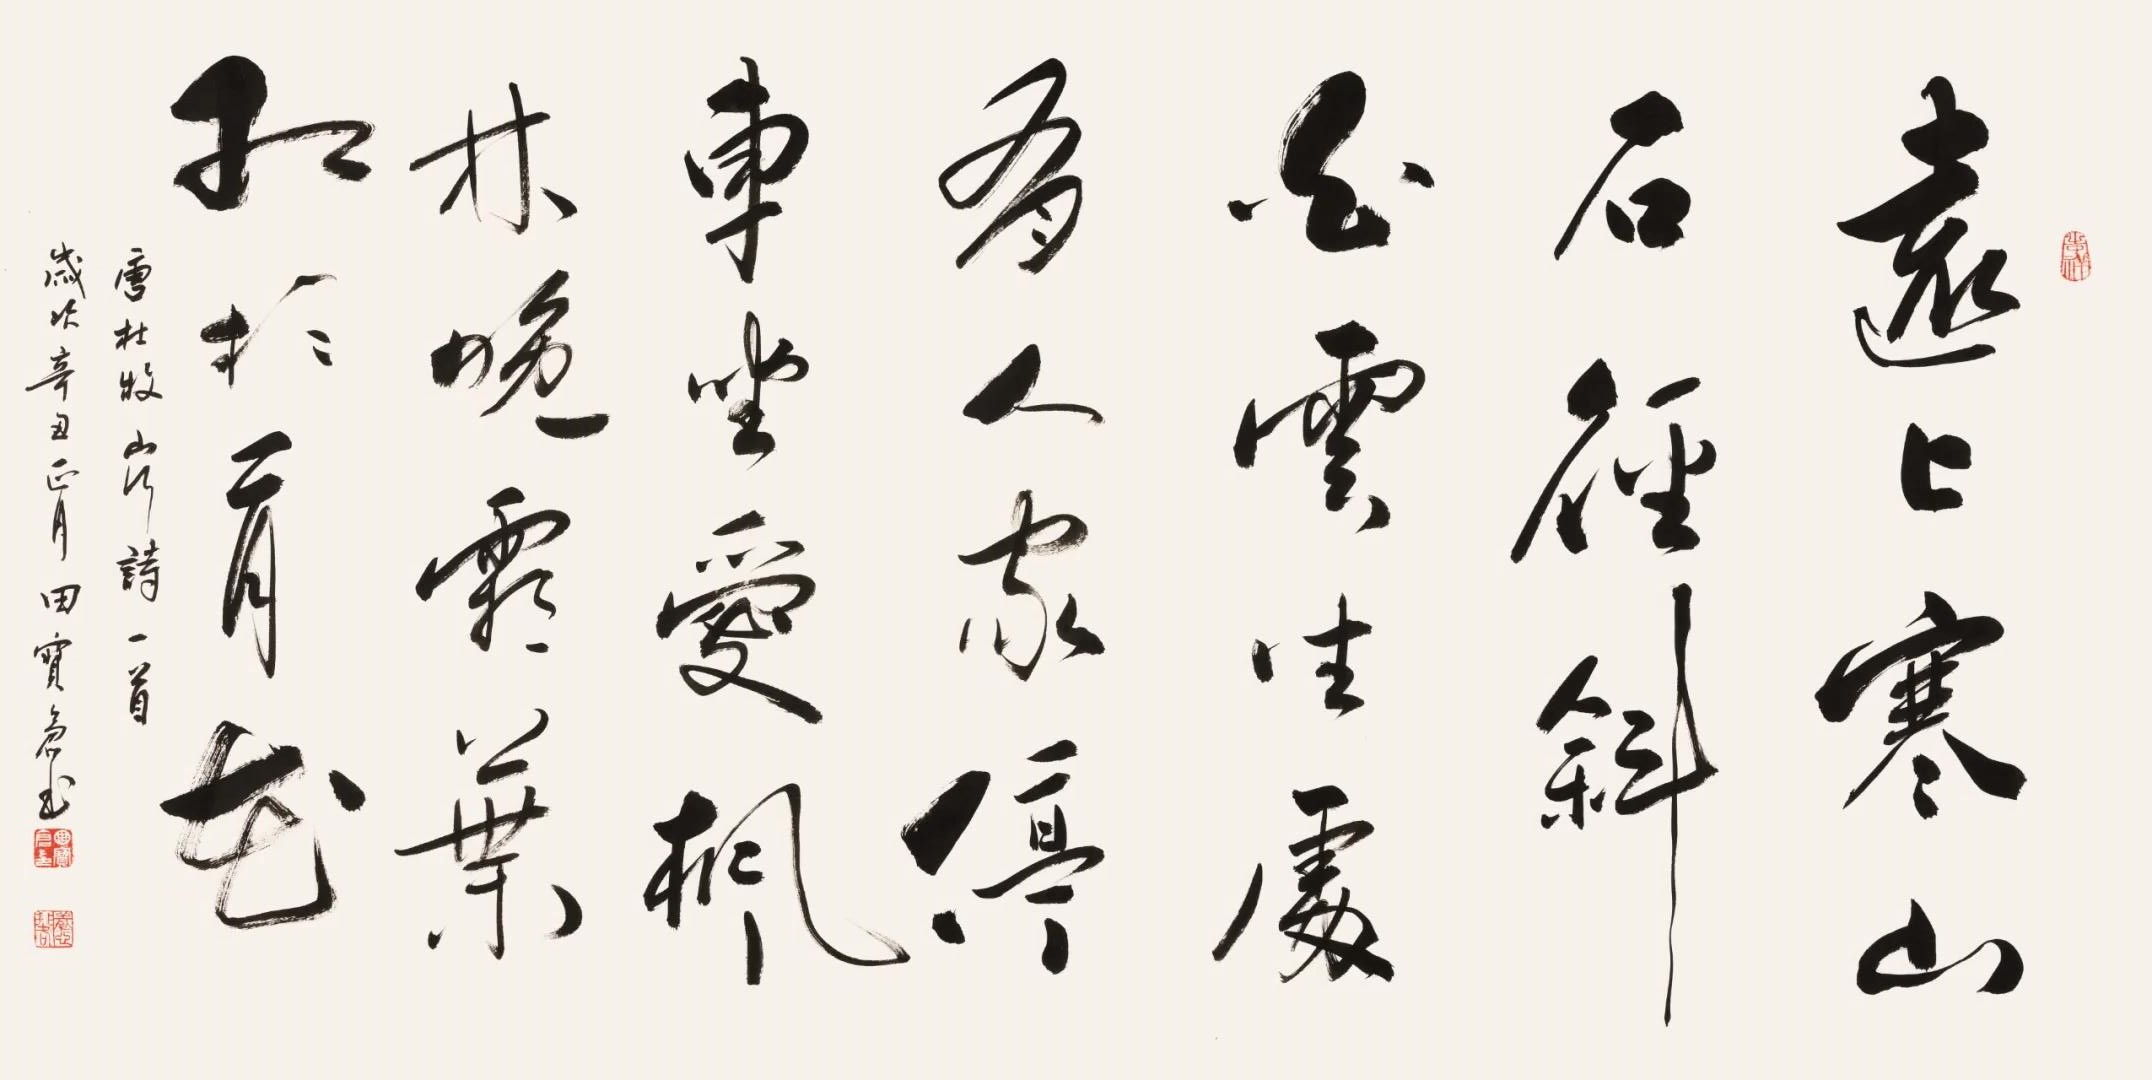 遠上寒山
石徑斜
白雲生處
有人家停
車坐愛楓
林晚霜葉
紅於二月花
唐杜牧山行詩一首
歲次辛丑正月田寶書